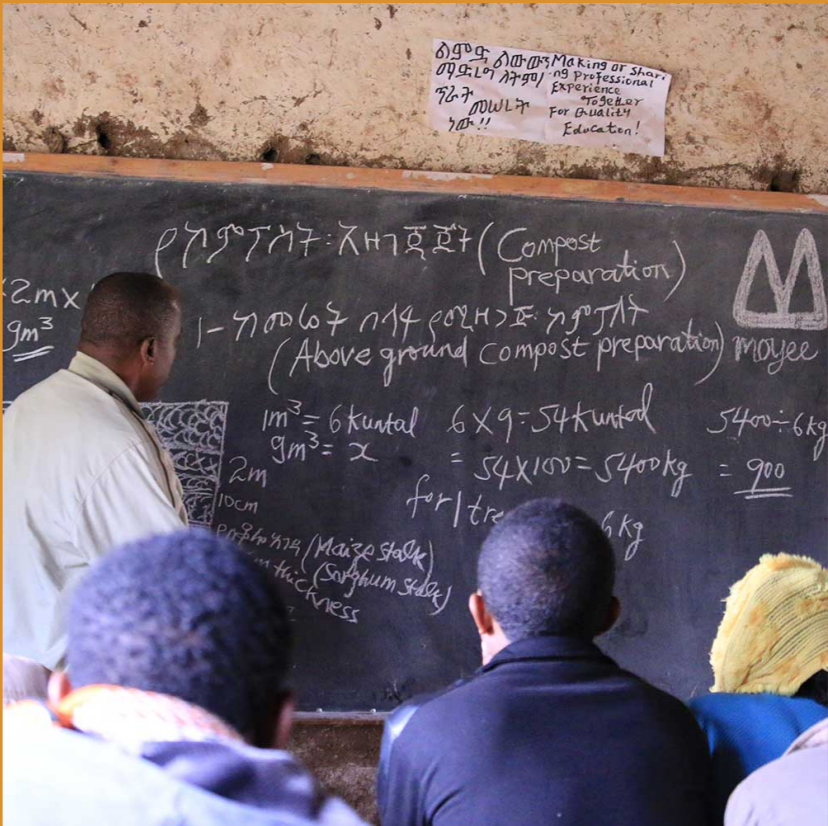 ልምድ ልውውጥ
ማድረግ ለትምህ
ጥራት
መሠረት
ነው!!
Making or shari
-ng professional
Experience
Together
For Quality
Education!
የኮምፖስት፡ አዘገጃጀት (Compost
preparation)
2mx
9m³
1- ከመሬት በላይ የሚዘጋጅ ኮምፖስት
(Above ground compost preparation)
moyee
1m³ = 6 kuntal
9m³ = x
6 X 9 = 54 kuntal
= 54X100 = 5400kg
5400÷6kg
= 900
for 1 tre
6kg
2m
10cm
(Maize stalk)
(Sorghum stalk)
thickness